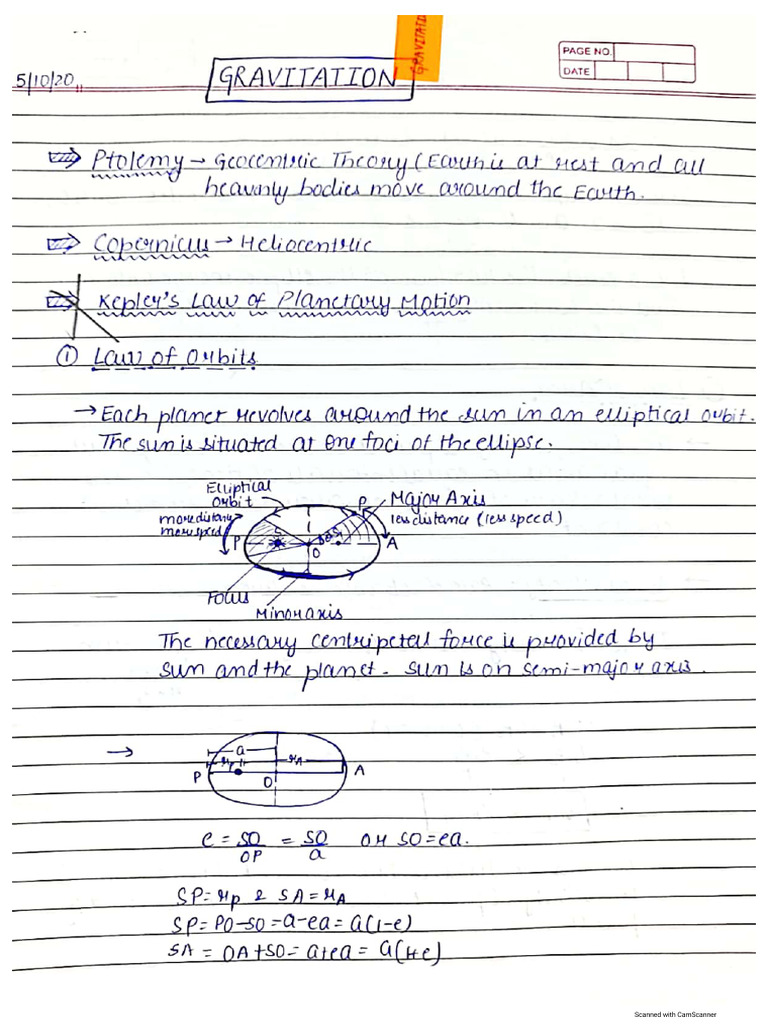 GRAVITATION
PAGE NO.
DATE
5/10/20
GRAVITATION
Ptolemy → Geocentric Theory (Earth is at rest and all
heavenly bodies move around the Earth.
Copernicus → Heliocentric
Kepler's Law of Planetary Motion
① Law of Orbits
→ Each planet revolves around the sun in an elliptical orbit.
The sun is situated at one foci of the ellipse.
Elliptical
orbit
P
Major Axis
more distance
more speed
less distance (less speed)
P
S
O
A
Focus
Minor axis
The necessary centripetal force is provided by
sun and the planet. Sun is on semi-major axis.
→
a
rp
rA
P
O
A
e = SO/OP = SO/a or SO = ea.
SP = rp & SA = rA
SP = PO-SO = a-ea = a(1-e)
SA = OA+SO = a+ea = a(1+e)
Scanned with CamScanner